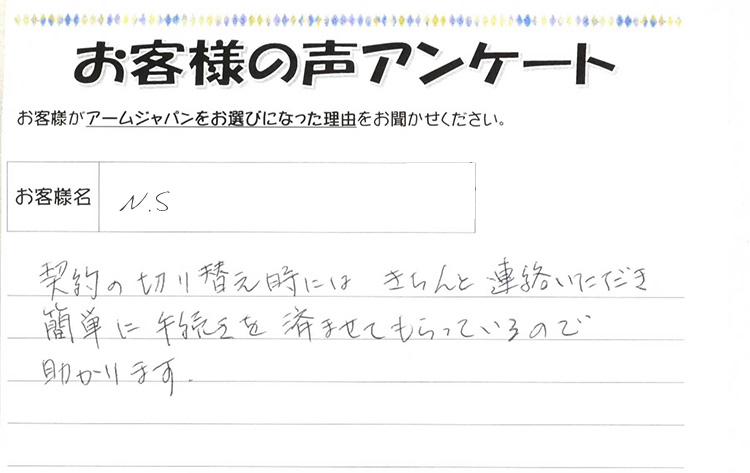 お客様の声アンケート
お客様がアームジャパンをお選びになった理由をお聞かせください。
お客様名 N.S
契約の切り替え時には きちんと連絡いただき
簡単に手続きを済ませてもらっているので
助かります.